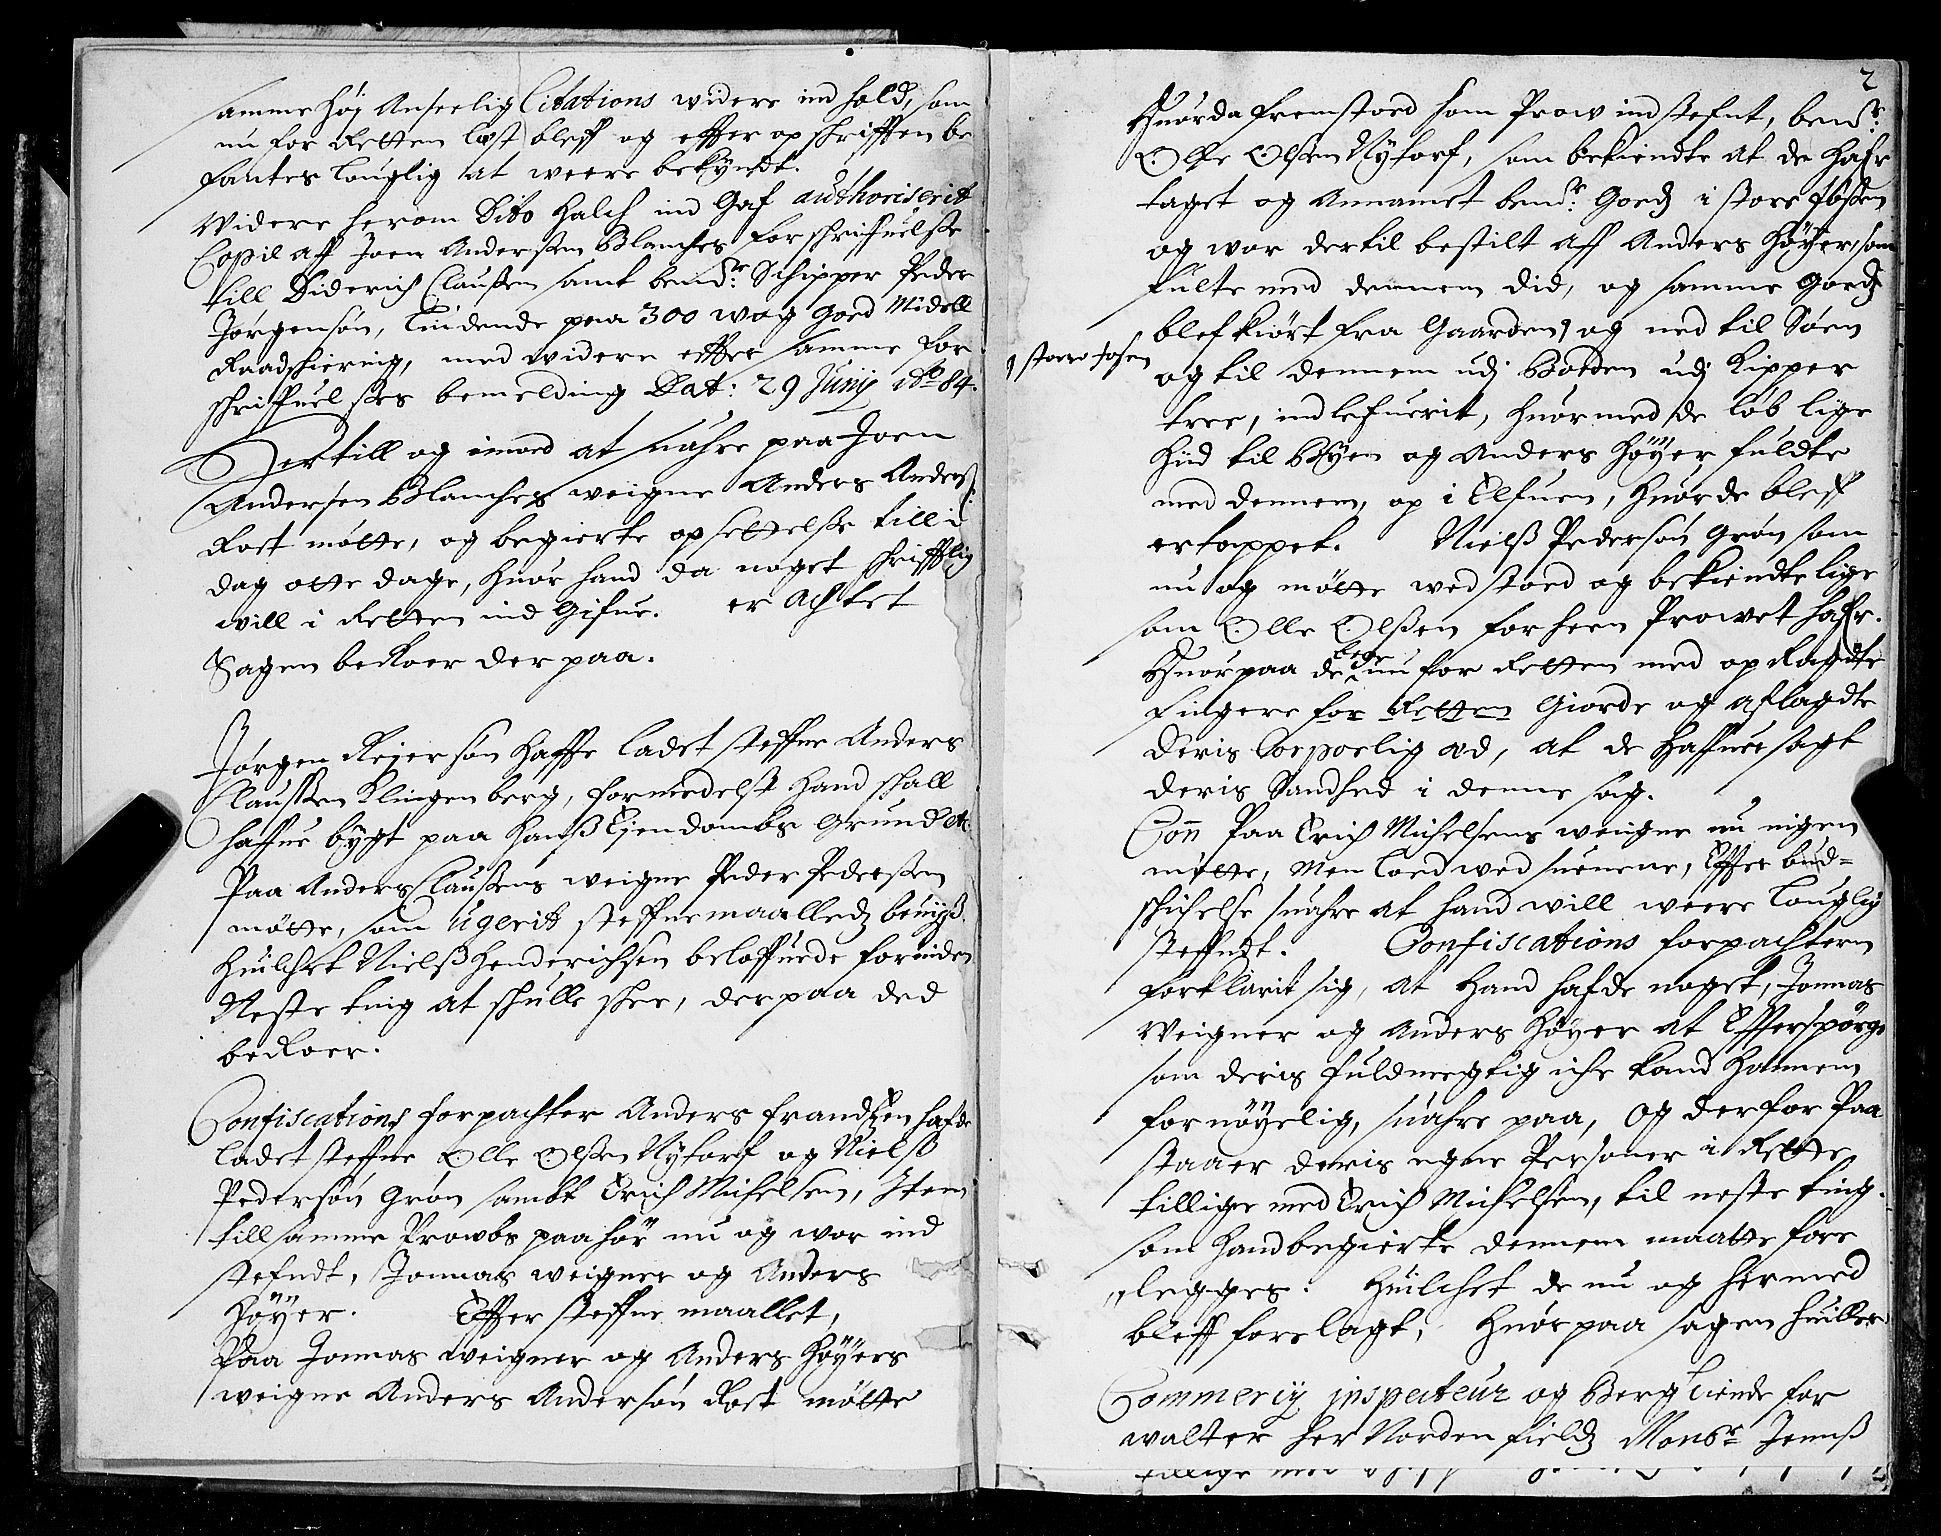 samme høy Anseelig Citations widere ind hold, som
nu for Retten læst bleff og effter opschrifften be
fantes louglig at weere bekyndt.
Widere herom Dito Halch ind Gaf authoriserit
Copie aff Joen Andersen Blanches forschrifuelse
till Diderich Claussen samt bemte Schipper Peder
Jørgensøn, liudende paa 300 wog Goed Midell
Raadschering, med widere effter samme for
schriffuelses bemelding Dat: 29 Junij 1684.
Hertill og imoed at suahre paa Joen
Andersen Blanches weigne Anders Anderss:
Rost møtte, og begierte opsettelse till i
dag otte dage, huor hand da noget schrifftlig
will i Retten ind Gifue. er achtet
Sagen beRoer der paa.
Jørgen Reiersøn Haffe ladet steffne Anders
Claussen Klingenberg, formedelst hand schall
haffue bygt paa hanß Eiendombs Grund etc.
Paa Anders Claussens weigne Peder Pederssen
møtte, som Ugerit steffnemaalledz beuiyß.
huilchet Nielß Henderichsen beloffuede forinden
Neste ting at schulle schee, der paa ded
beRoer.
Confiscations forpachter Anders frandtzen hafde
ladet steffne Olle Olsen Nytorf og Nielß
Pedersøn Grøn sambt Erich Michelsen, Item
till samme Prowbs paahør nu og war ind
stefndt, Jonnas weigner og Anders
Høyer. Effter steffnemaallet,
Paa Jonnas weigner og Anders Høyers
weigne Anders Andersøn Rost møtte
2
Huorda fremstoed som Prow indstefnt, bemte:
Olle Olsen Nytorf, som bekiendte at de Hafr
taget og Annamet bemte: Goedz i store fossen
og war dertil bestilt aff Anders Høyer, som
fulte med dennem did, og samme Goedz
blef kiørt fra Gaarden, og ned til Søen
, store fosen
og til dennem udj Baaden udj Kipper
tree, indlefuerit, huormed de løb lige
hid til Byen og Anders Høyer fuldte
med dennem, op i Elfuen, huor de bleff
ertappet. Nielß Pedersøn Grøn som
nu og møtte wedstoed og bekiendte lige
som Olle Olßen forhen Prowet hafr.
Huorpaa de bege nu for Retten med opRagdte
Fingere for Retten Giorde og aflagdte
deris Corporlig æd, at de haffuer sagt
deris Sandhed i denne sag.
Paa Erich Michelsens weigne nu ingen
møtte, Men loed wed suenene, Effter bud=
schichelse suahre at hand will weere louglig
steffndt. Confiscations forpachteren
forklarit sig, at hand hafde noget, Jonnas
Weigner og Anders Høyer at Effterspørge
som deris fuldmegtig iche kand hannem
fornøyelig, suahre paa, og derfor Paa
staaer deris egne Personer i Rette
tillige med Erich Michelsen, til neste ting.
som hand begierte dennem maatte fore
legges: Huilchet de nu og hermed
bleff forelagt, Huorpaa sagen huiller
Commercij inspecteur og Berg tiende for
walter her Norden fieldz Monsr Jennß